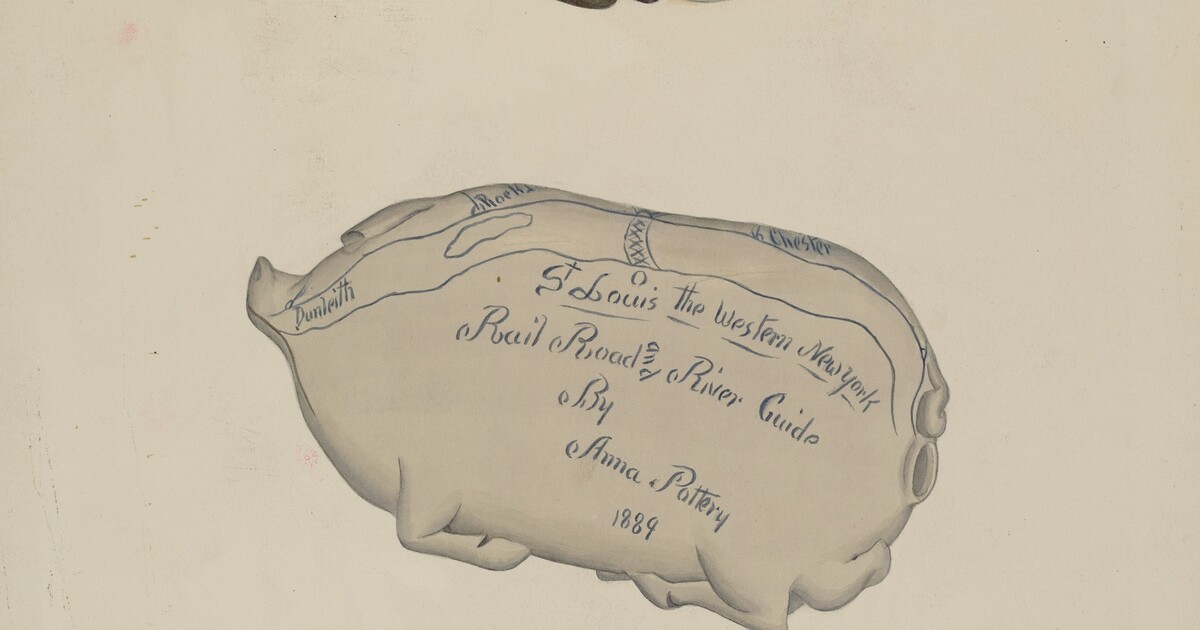 Rock
Chester
Dunleith
St Louis the Western New york
Rail Road and River Guide
By
Anna Pottery
1889